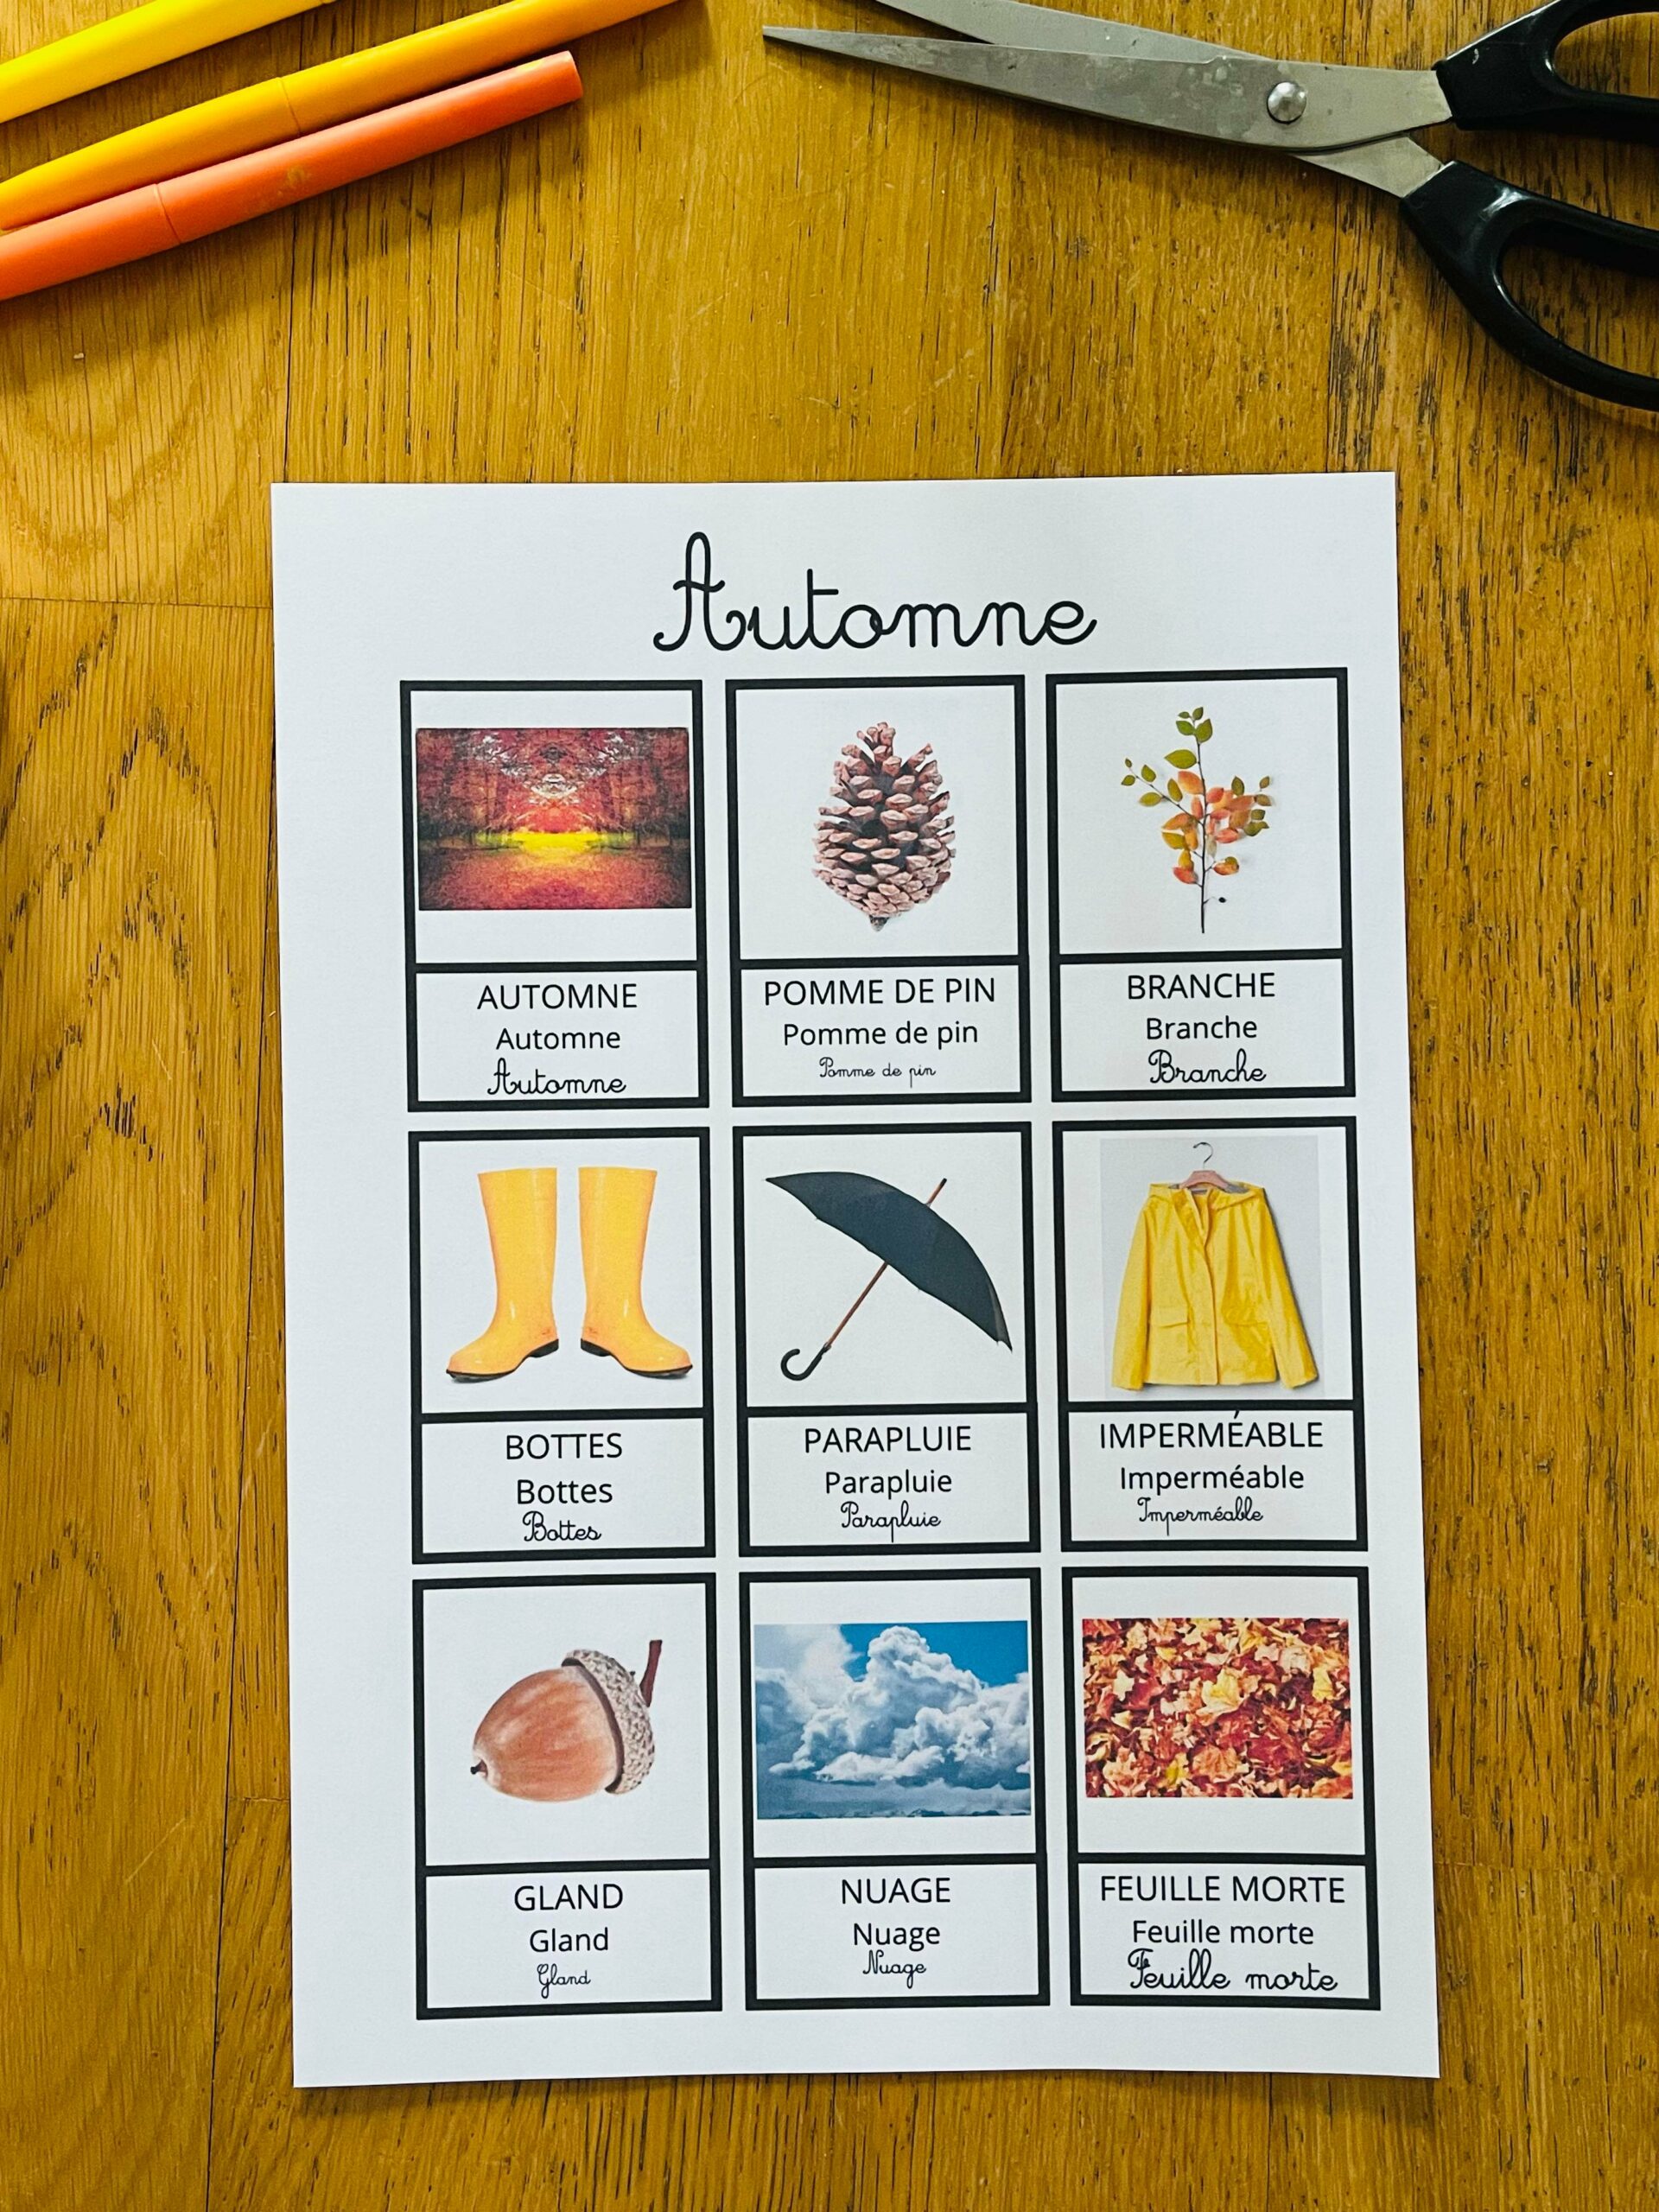 Automne
AUTOMNE
Automne
Automne
POMME DE PIN
Pomme de pin
Pomme de pin
BRANCHE
Branche
Branche
BOTTES
Bottes
Bottes
PARAPLUIE
Parapluie
Parapluie
IMPERMÉABLE
Imperméable
Imperméable
GLAND
Gland
Gland
NUAGE
Nuage
Nuage
FEUILLE MORTE
Feuille morte
Feuille morte